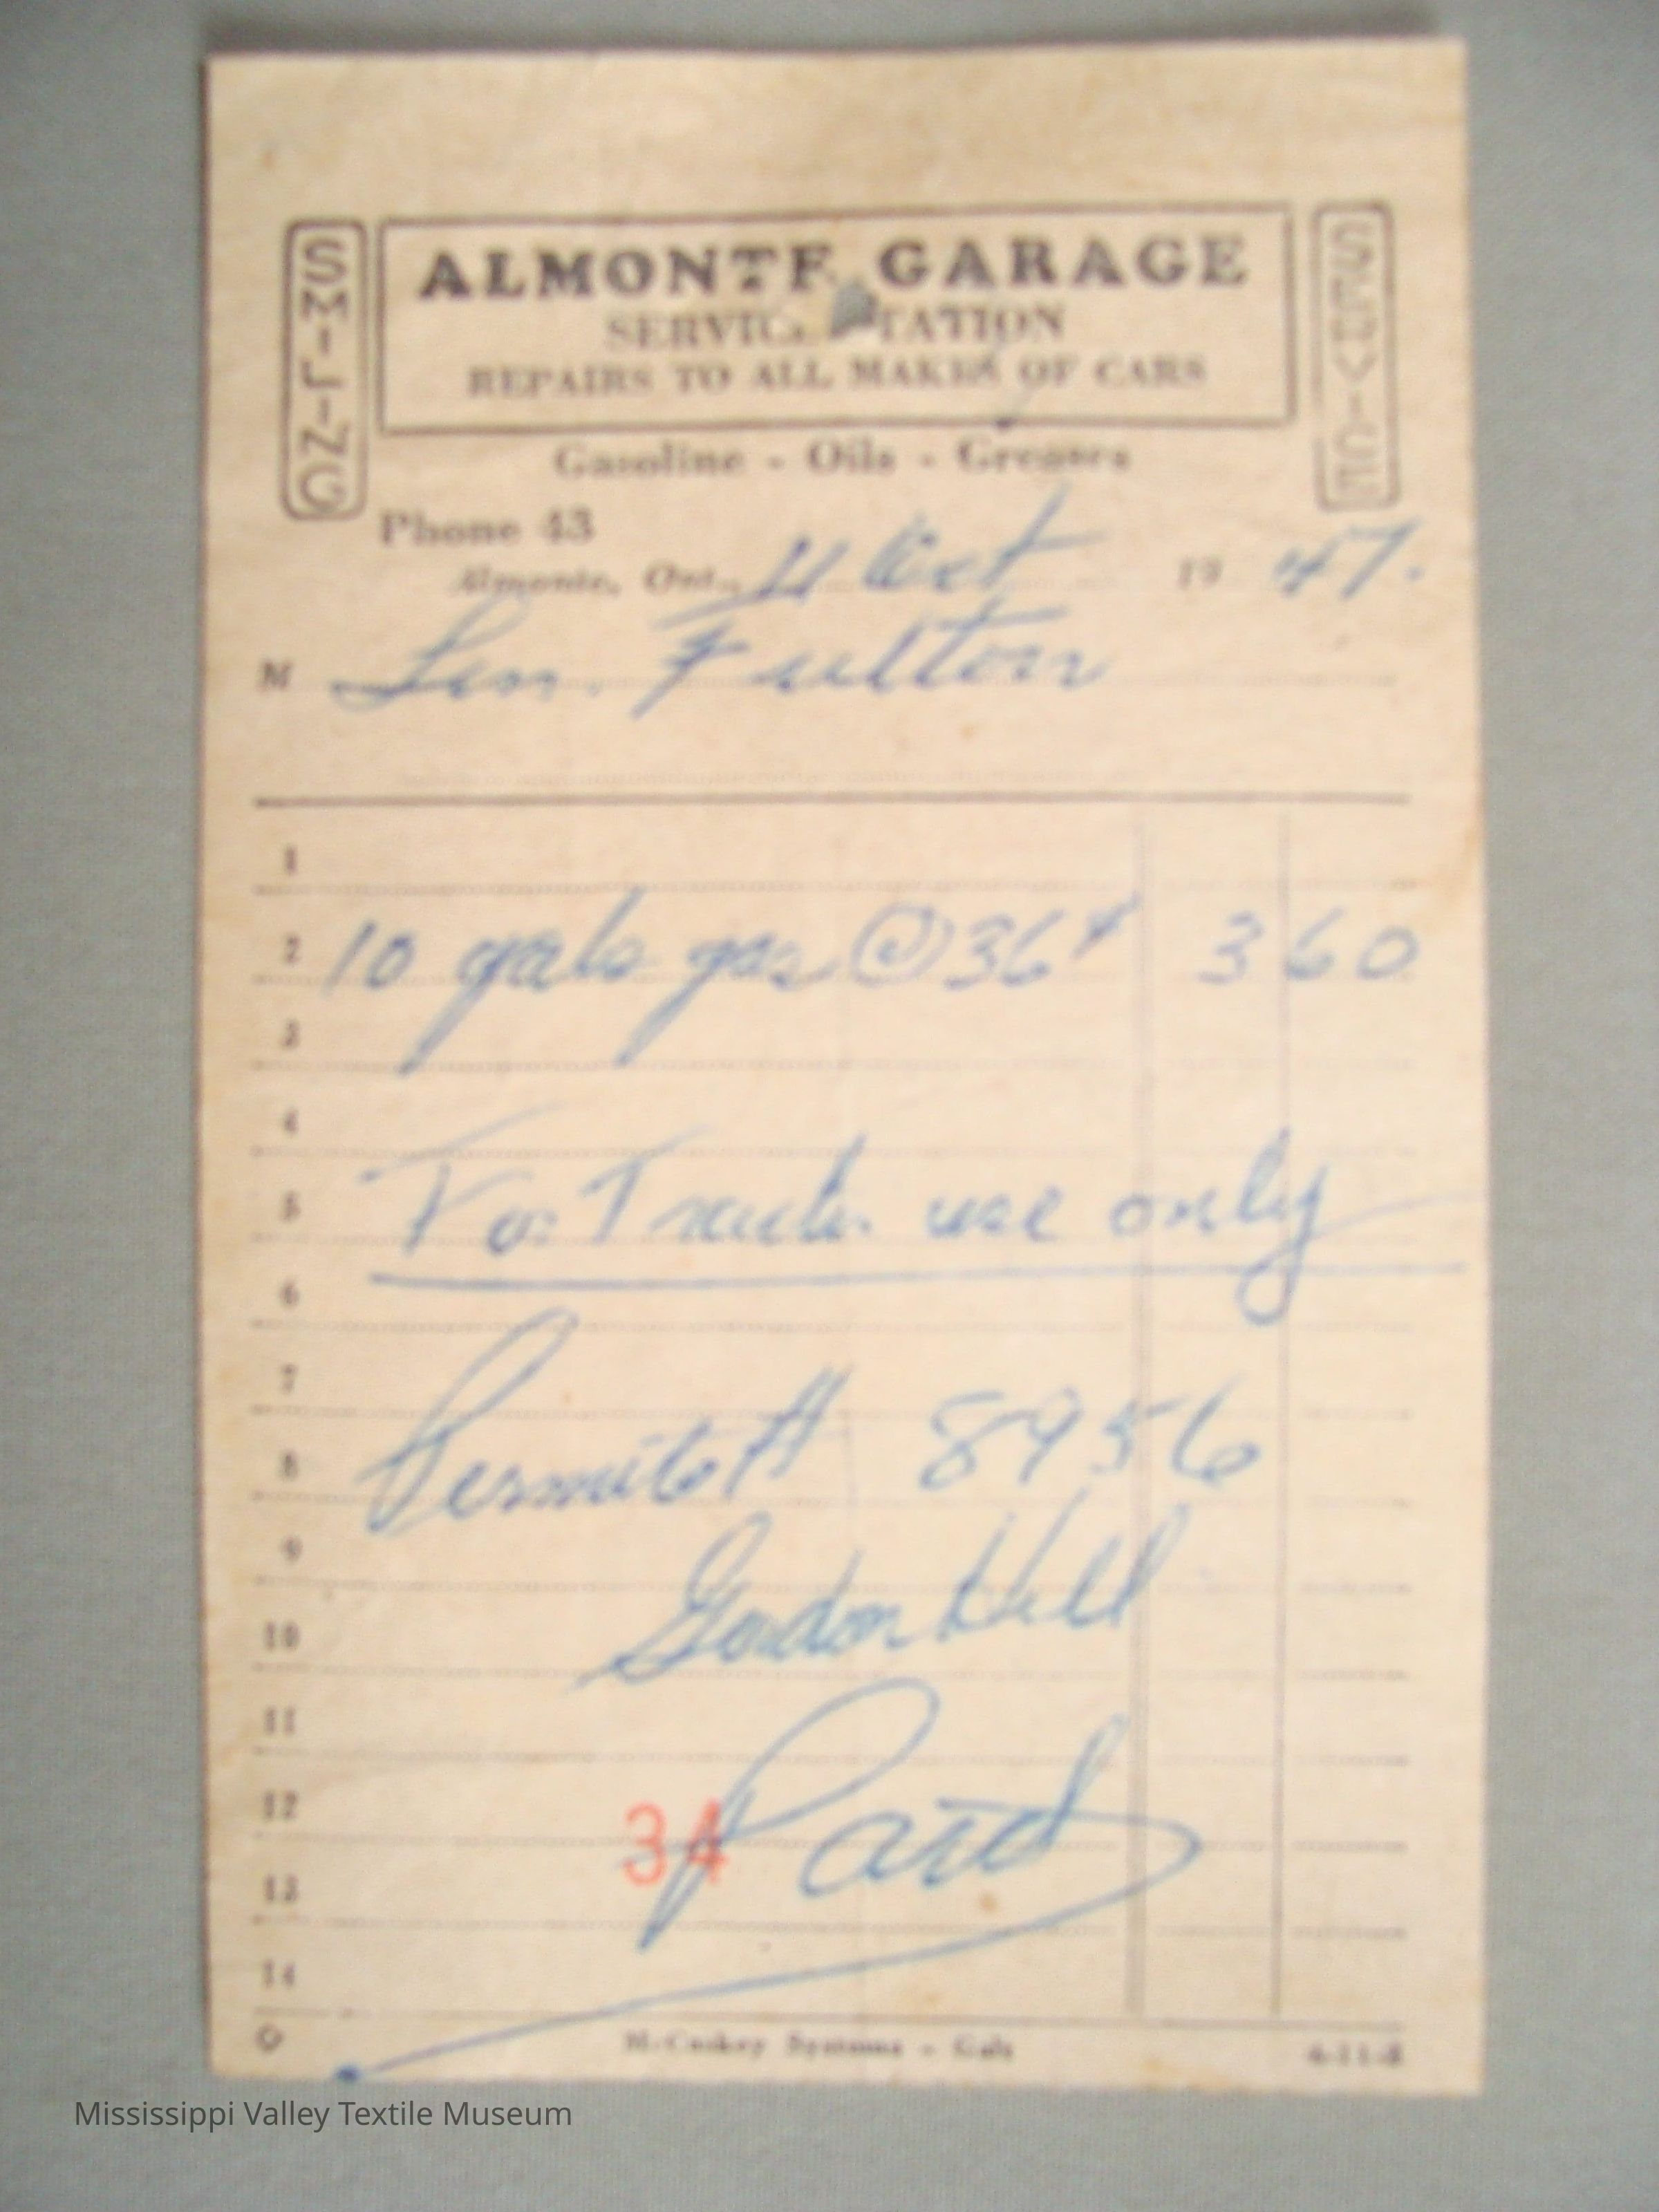 SMILING
ALMONTE GARAGE
SERVICE STATION
REPAIRS TO ALL MAKES OF CARS
SERVICE
Gasoline - Oils - Greases
Phone 43
Almonte, Ont., 11 Oct 19 47.
M Len. Fulton
1
2 10 gals gas @ 36¢ 3 60
3
4
5 For Truck use only
6
7
8 Permit # 8956
9
10 Gordon Hill
11
12
34 Paid
13
14
McCaskey Systems - Galt 4-11-8
Mississippi Valley Textile Museum